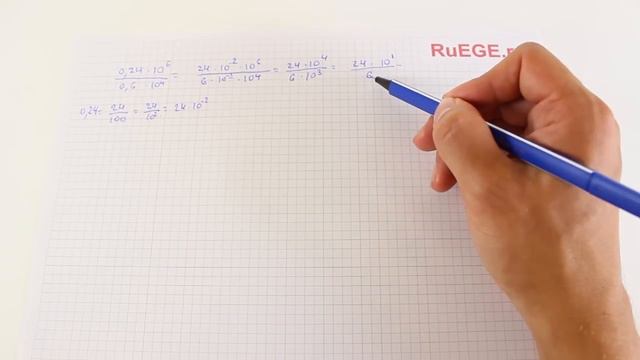 RuEGE.r
0,24 · 10⁶ / 0,6 · 10⁴ = 24 · 10⁻² · 10⁶ / 6 · 10⁻¹ · 10⁴ = 24 · 10⁴ / 6 · 10³ = 24 · 10¹ / 6 =
0,24 = 24 / 100 = 24 / 10² = 24 · 10⁻²